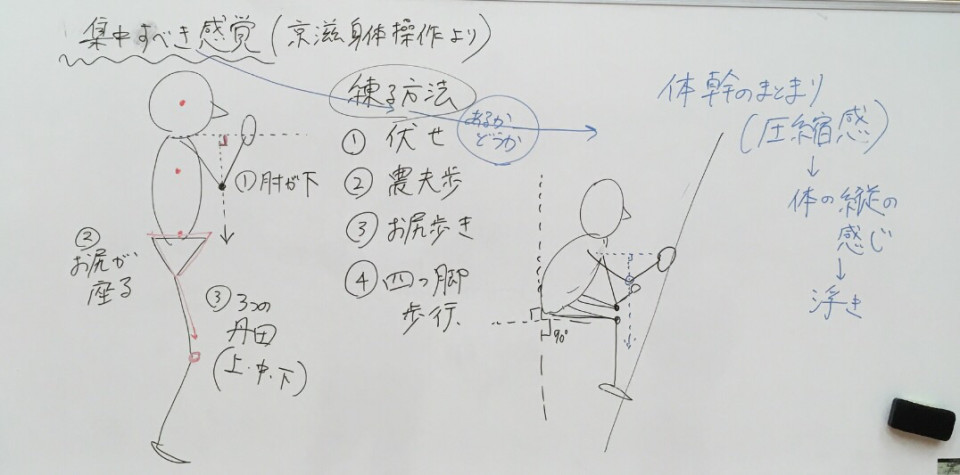 集中すべき感覚(京滋身体操作より)
練る方法
あるか
どうか
① 伏せ
② 農夫歩
③ お尻歩き
④ 四つ脚
歩行
①肘が下
②
お尻が
座る
③ 3つの
丹田
(上・中・下)
90°
体幹のまとまり
(圧縮感)
↓
体の縦の
感じ
↓
浮き